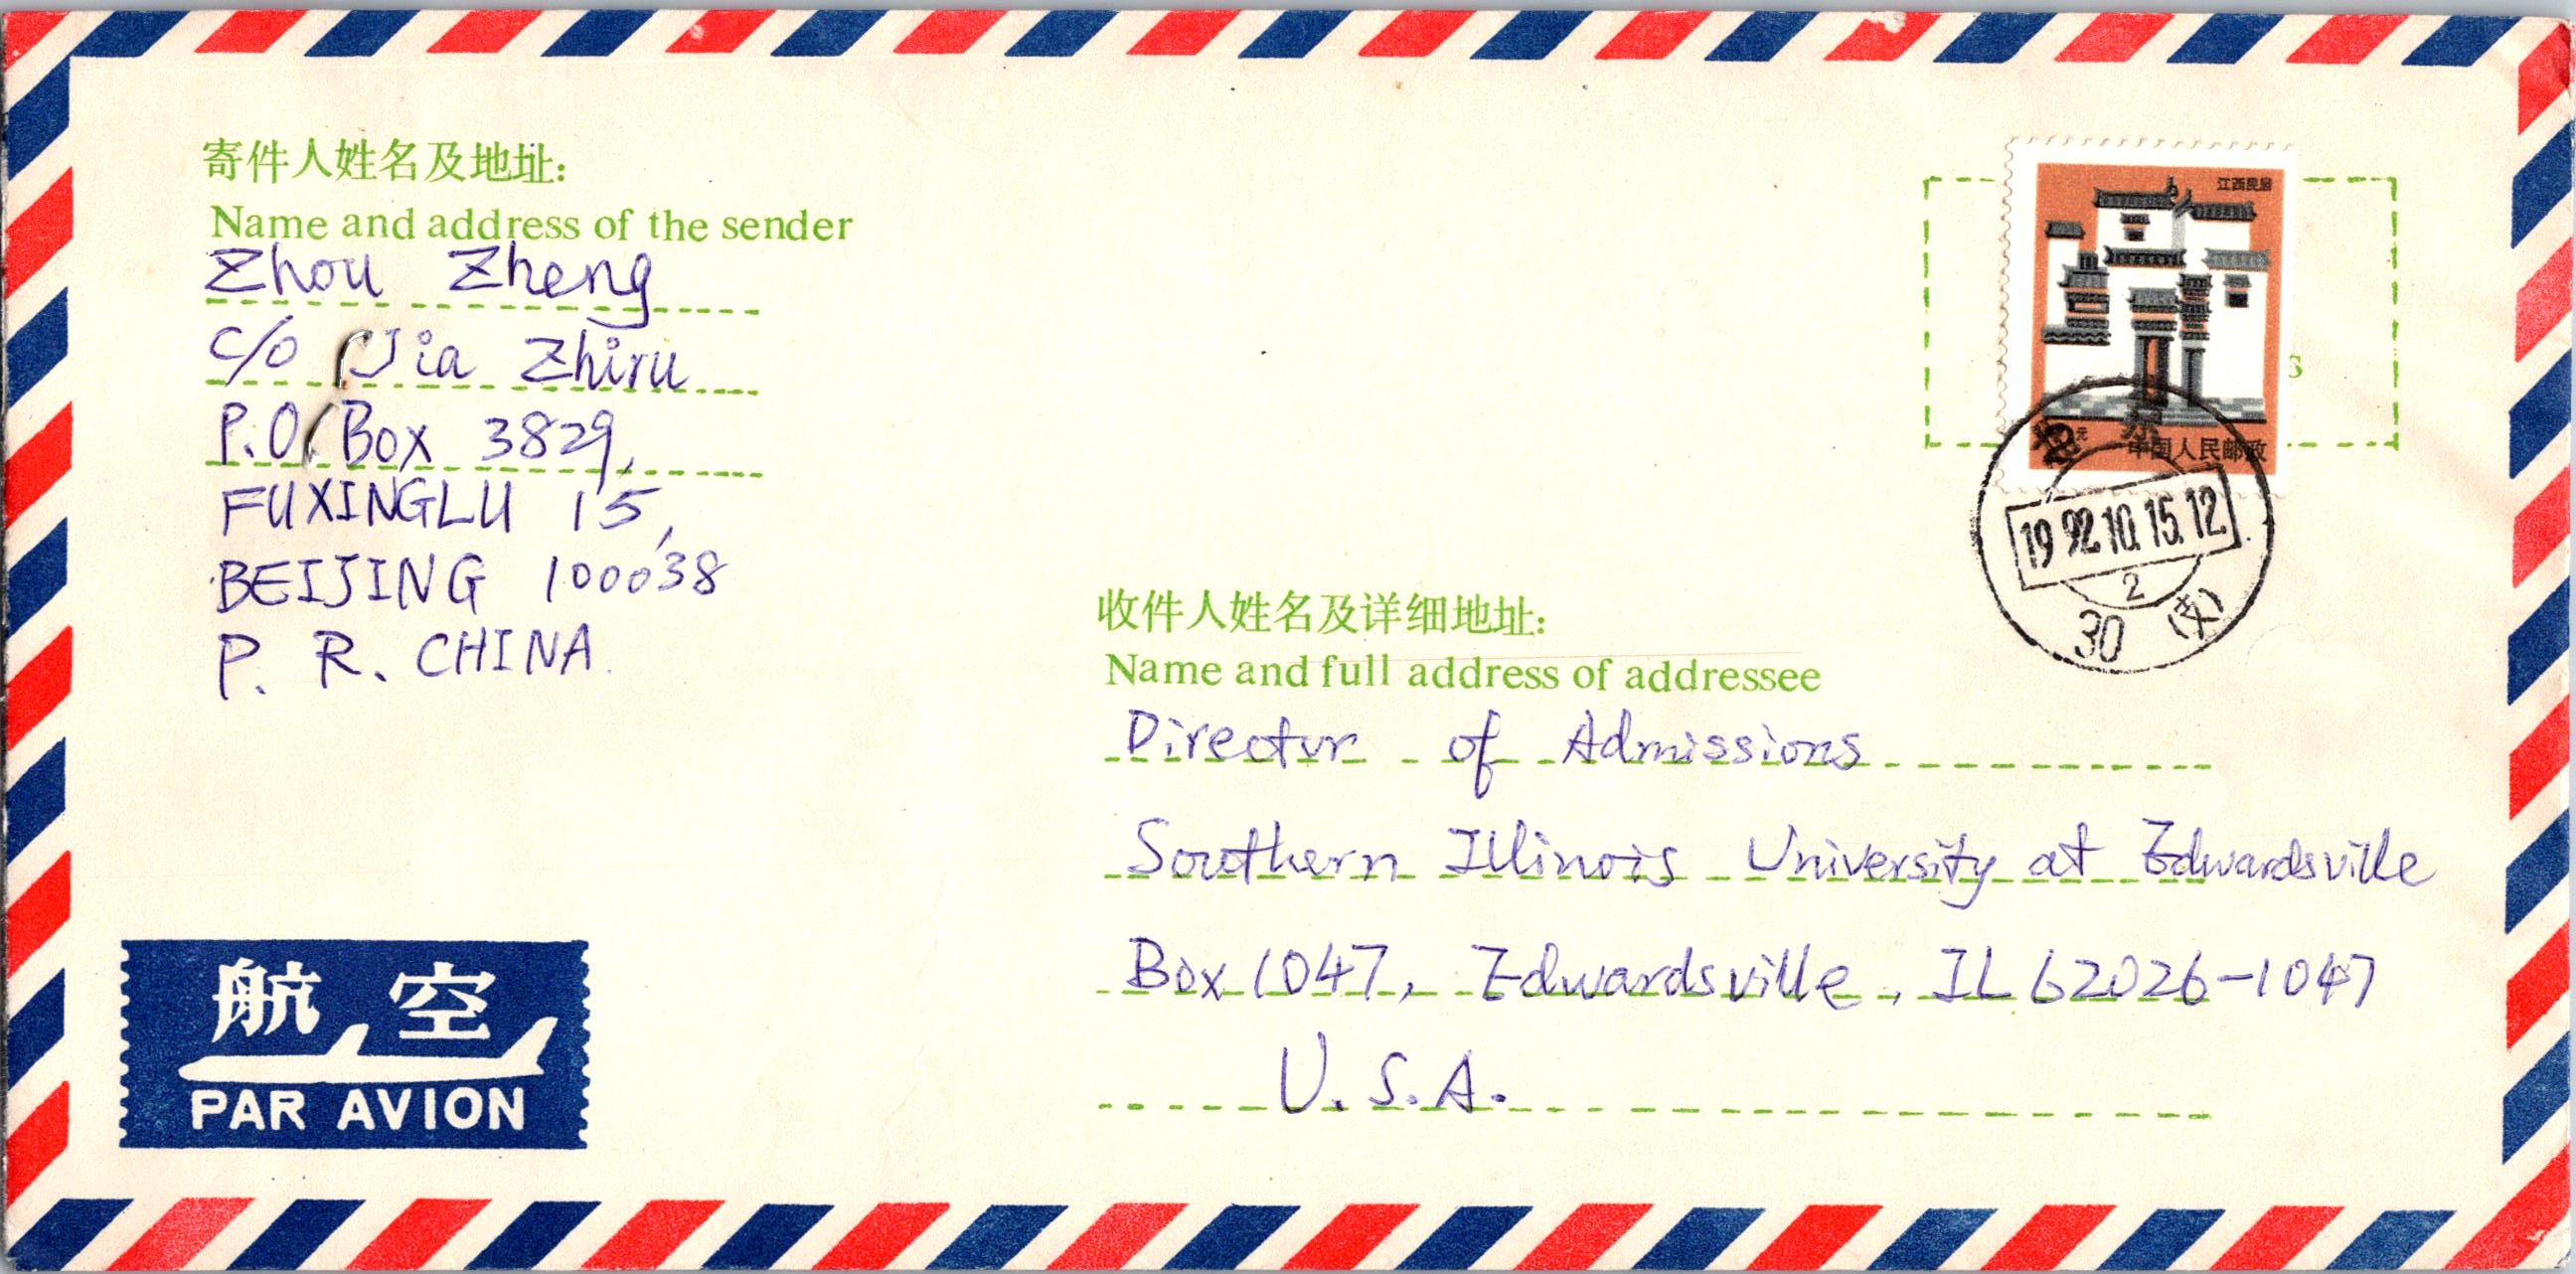 寄件人姓名及地址:
Name and address of the sender
Zhou Zheng
c/o Jia Zhiru
P.O. Box 3829,
FUXINGLU 15,
BEIJING 100038
P. R. CHINA.
江西民居
元
中国人民邮政
北京
1992.10.15.12
2
30 (支)
s
收件人姓名及详细地址:
Name and full address of addressee
Director of Admissions
Southern Illinois University at Edwardsville
Box 1047, Edwardsville, IL 62026-1047
U.S.A.
航空
PAR AVION